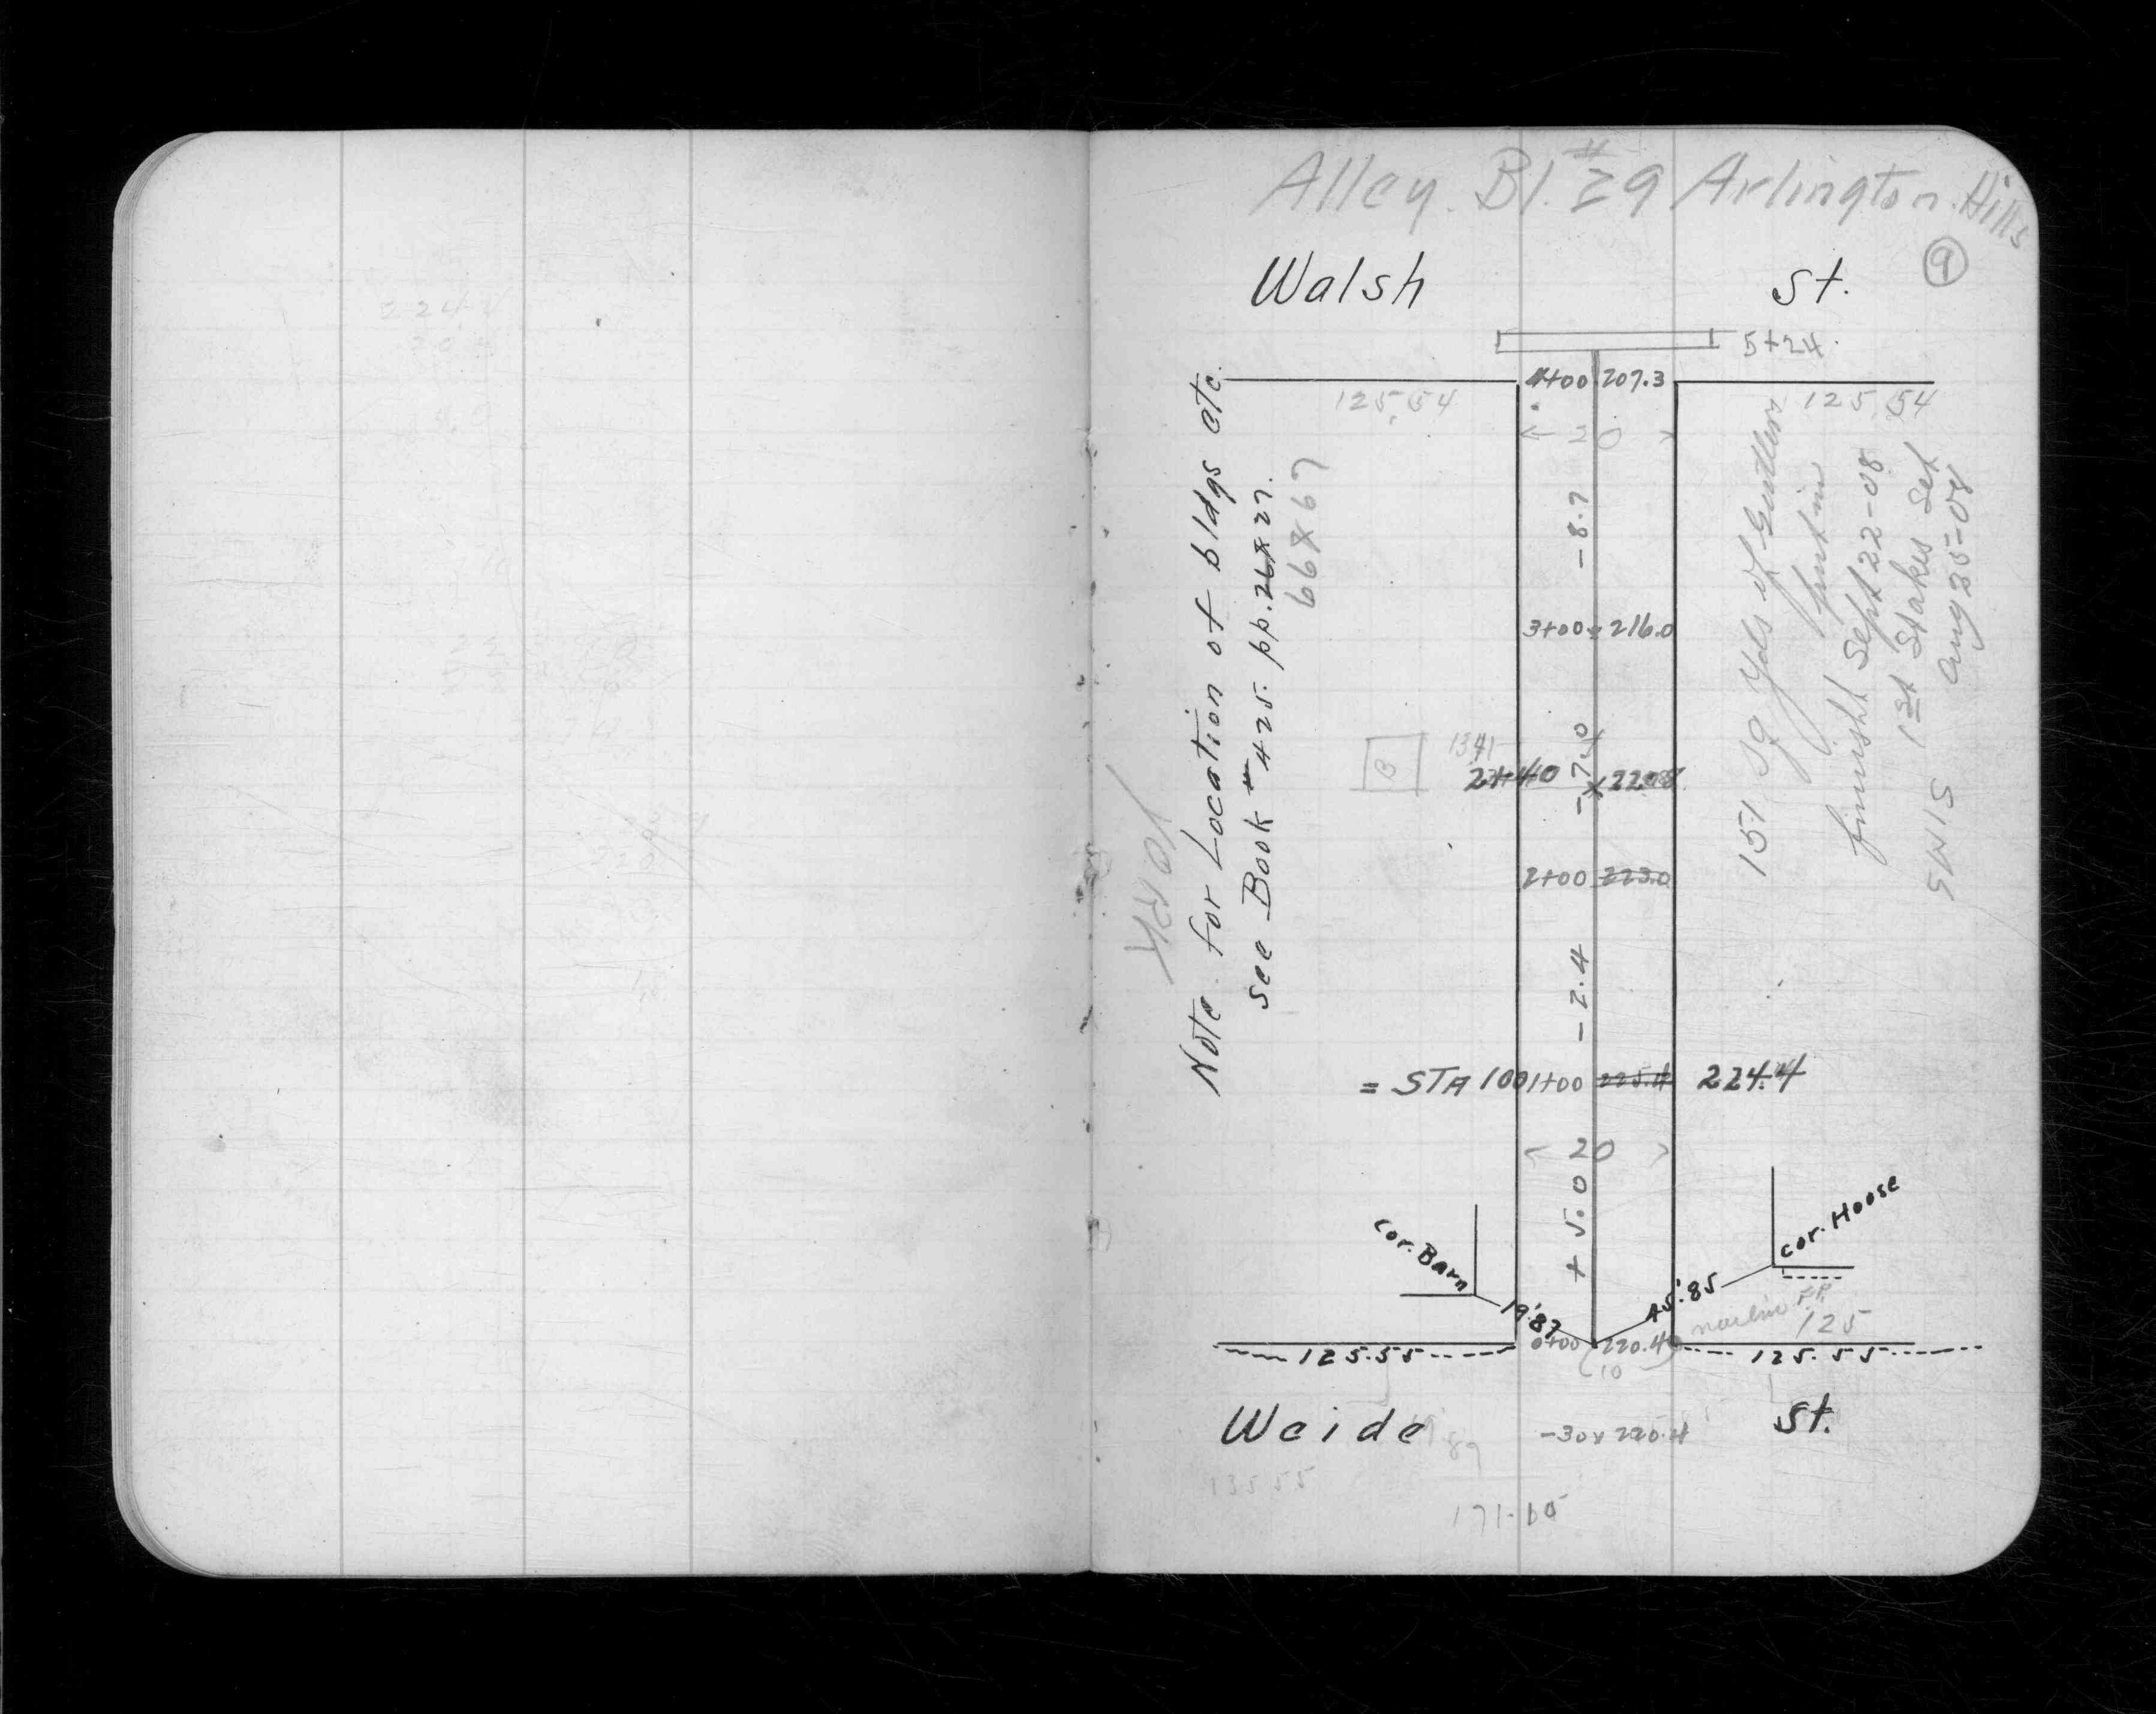 Alley. Bl. #29 Arlington. Hills
9
Walsh St.
5+24.
4+00 207.3
125.54
125.54
← 20
-8.7
3+00 216.0
-7.0
1341
B
2+40 × 220.8
2+00 223.0
-2.4
= STA 100 1+00 225.4 224.4
20
+5.0
Cor. Barn
Cor. House
19.87
45.85
125
0+00 220.4
125.55
125.55
10
Weide St.
-30 × 220.4
89
135 55
171.65
York
Note. for Location of bldgs etc.
see Book # 425. pp. 26 & 27.
66 & 67
151 sq yds of Gutters
put in
finisht Sept 22-08
1st Stakes Set
Aug 25-08
SWIS